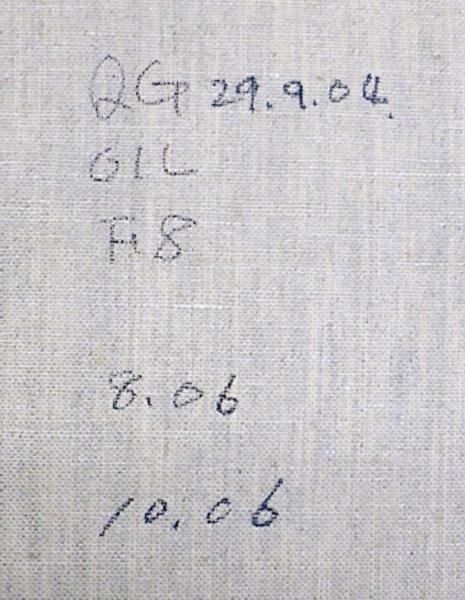 QG 29.9.04.
OIL
F8
8.06
10.06